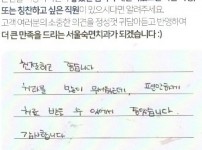 또는 칭찬하고 싶은 직원이 있으시다면 알려주세요.
고객 여러분의 소중한 의견을 정성껏 귀담아듣고 반영하여
더 큰 만족을 드리는 서울숙면치과가 되겠습니다 :)
친절하고 좋습니다
치과를 많이 무서워하는데, 편안하게
치료 받을 수 있어서 좋았습니다
감사합니다